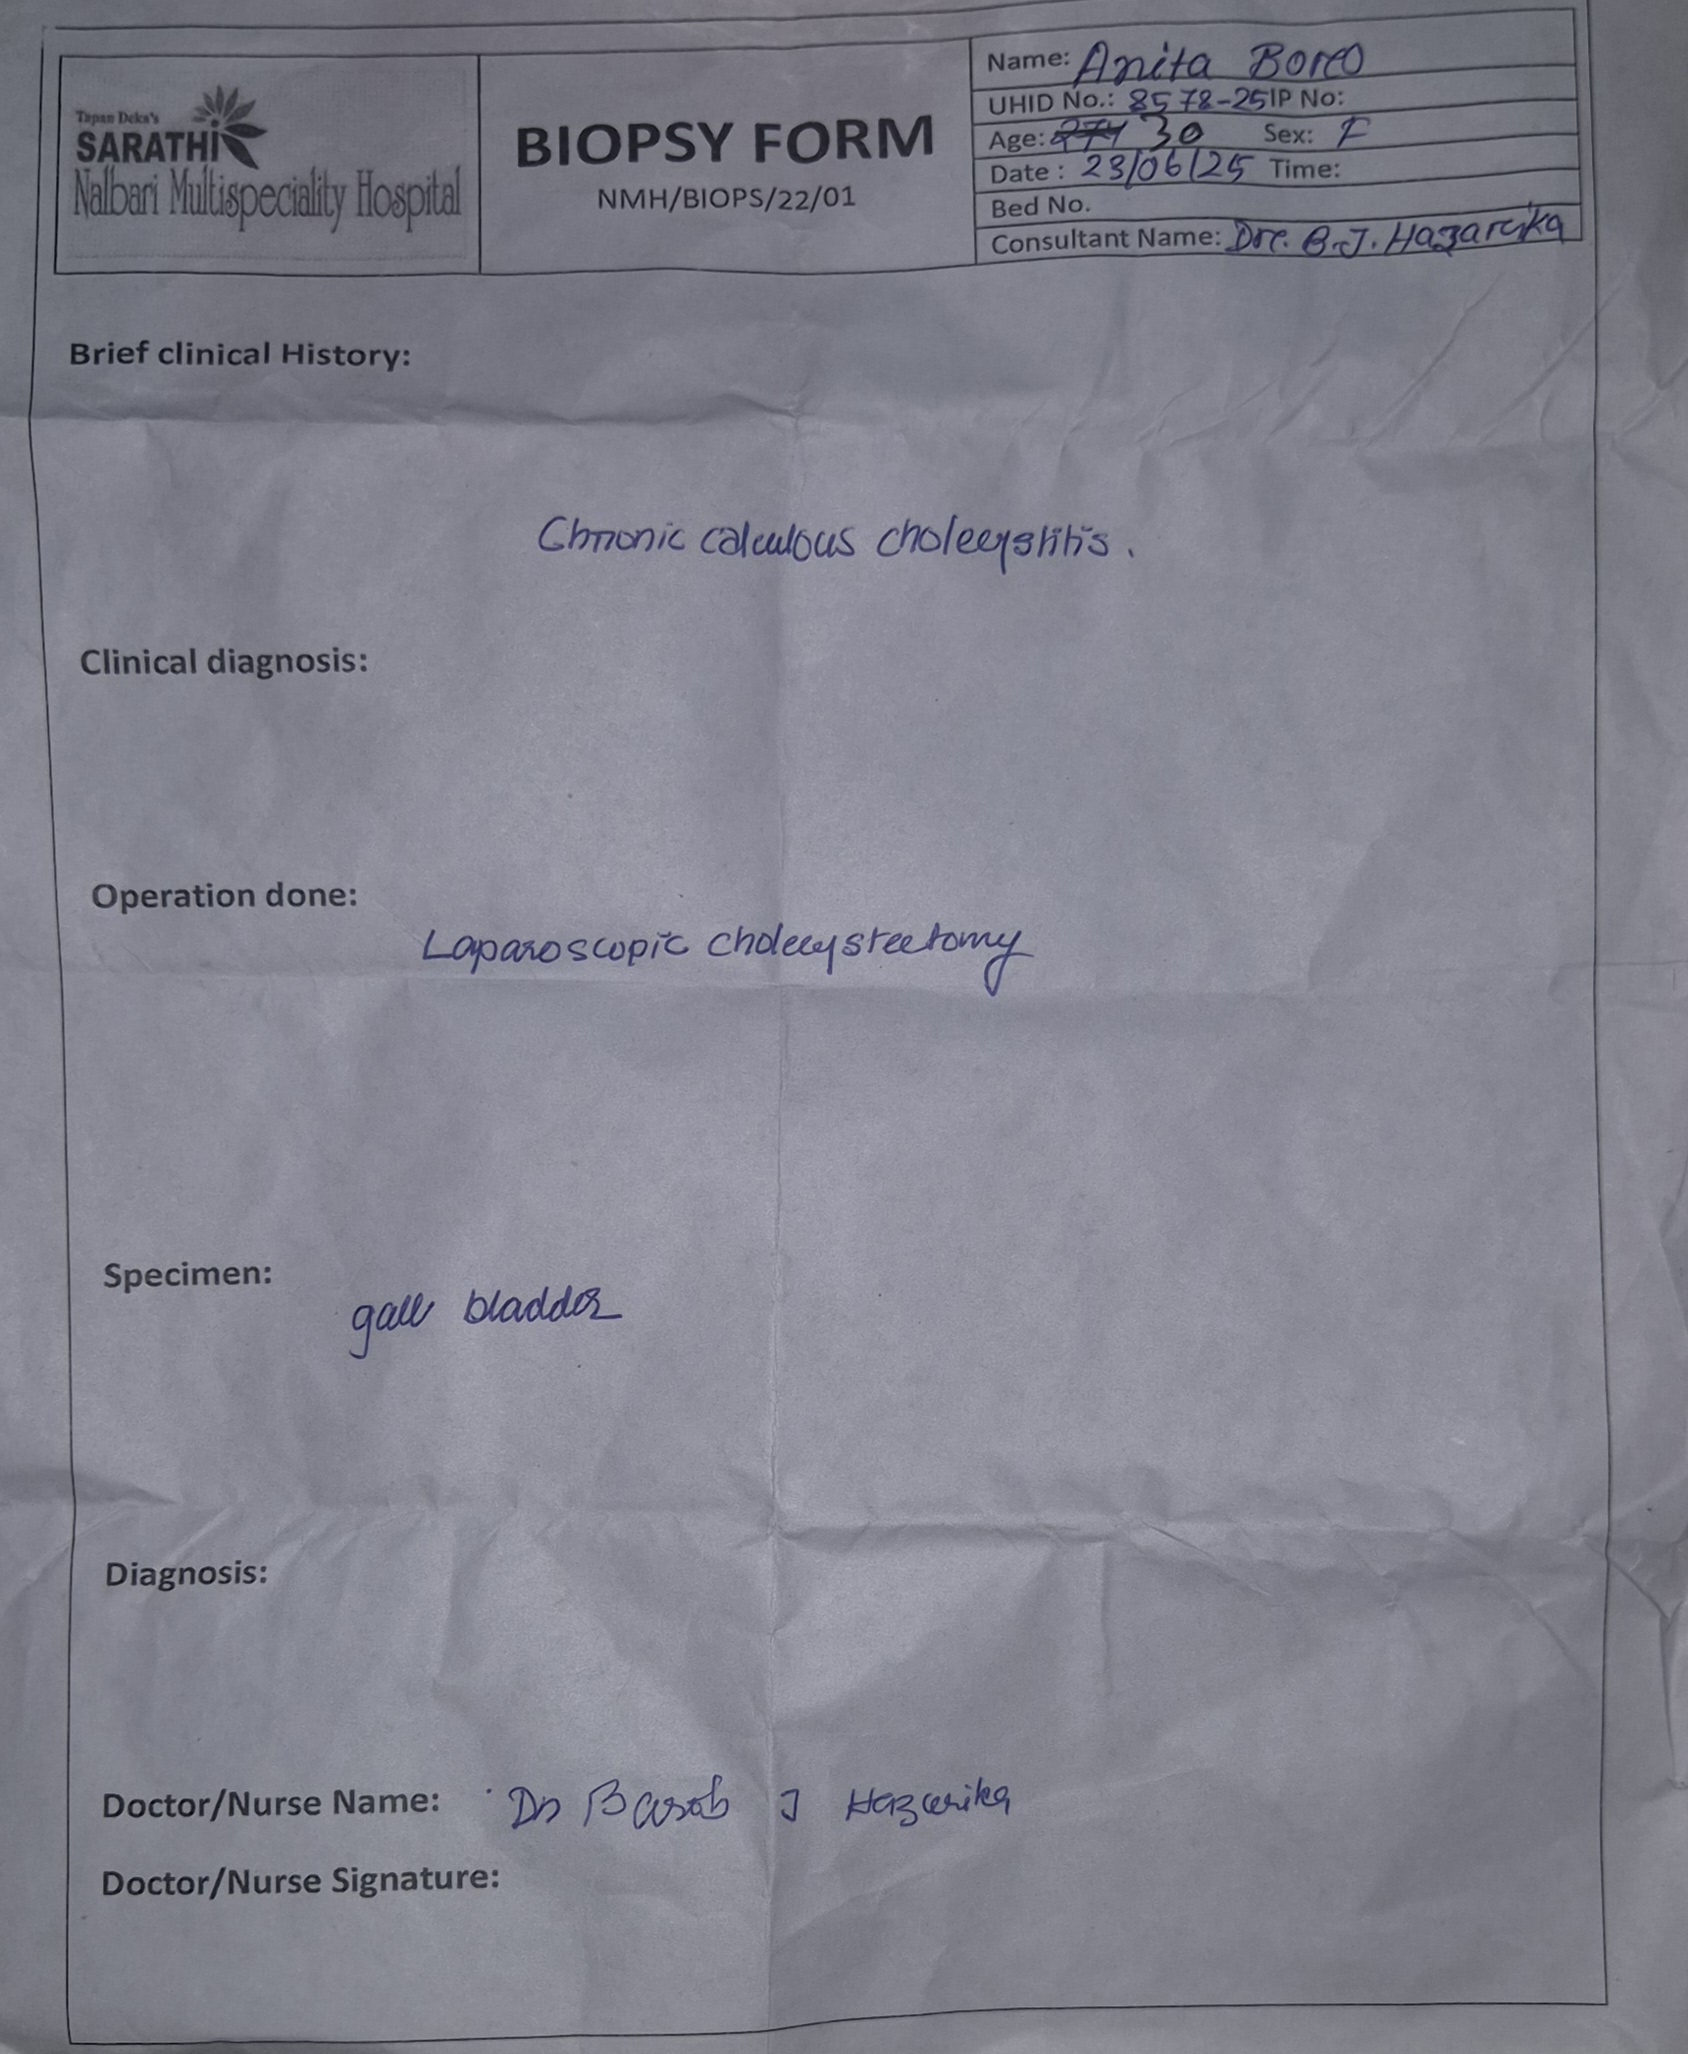 Tapan Deka's
SARATHI
Nalbari Multispeciality Hospital
BIOPSY FORM
NMH/BIOPS/22/01
Name: Anita Boro
UHID No.: 8578-25 IP No:
Age: 30 Sex: F
Date : 23/06/25 Time:
Bed No.
Consultant Name: Dr. B.J. Hazarika
Brief clinical History:
Chronic calculous cholecystitis.
Clinical diagnosis:
Operation done:
Laparoscopic cholecystectomy
Specimen:
gall bladder
Diagnosis:
Doctor/Nurse Name: Dr J Hazarika
Doctor/Nurse Signature: